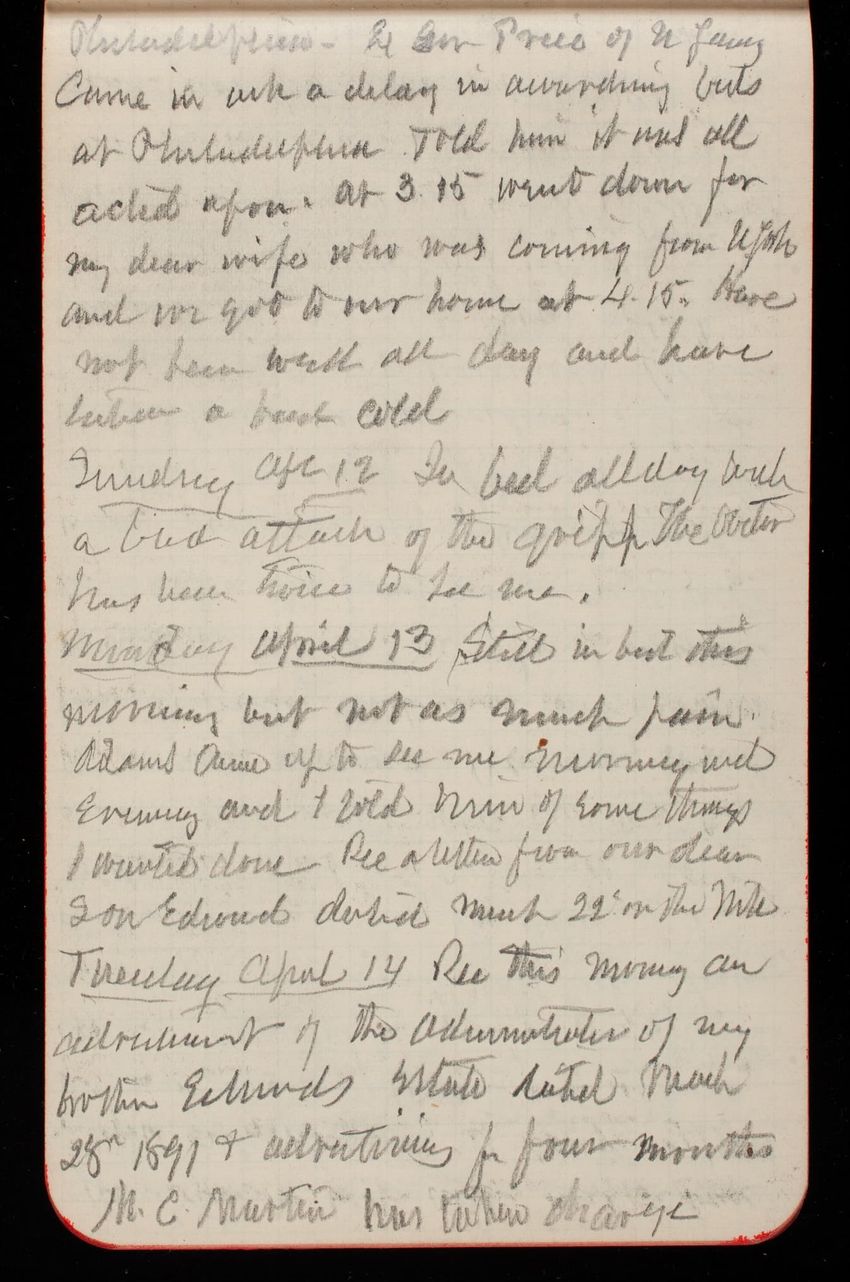 Philadelphia - Ex Gov Price of N Jersey
Came in ask a delay in awarding bids
at Philadelphia Told him it was all
acted upon. at 3.15 went down for
my dear wife who was coming from NYork
and we got to our home at 4.15. Have
not been well all day and have
taken a bad cold
Sunday Apl 12 In bed all day with
a bad attack of the gripp The Doctor
has been twice to see me.
Monday April 13 Still in bed this
morning but not as much pain.
Adams Came up to see me morning and
Evening and I told him of some things
I wanted done Rec a letter from our dear
Son Edward dated March 22d on the Nile
Tuesday April 14 Rec this morning an
advertisement of the Administrator of my
brother Edwards Estate dated March
28th 1891 & advertising for four months
M. C. Martin has taken charge